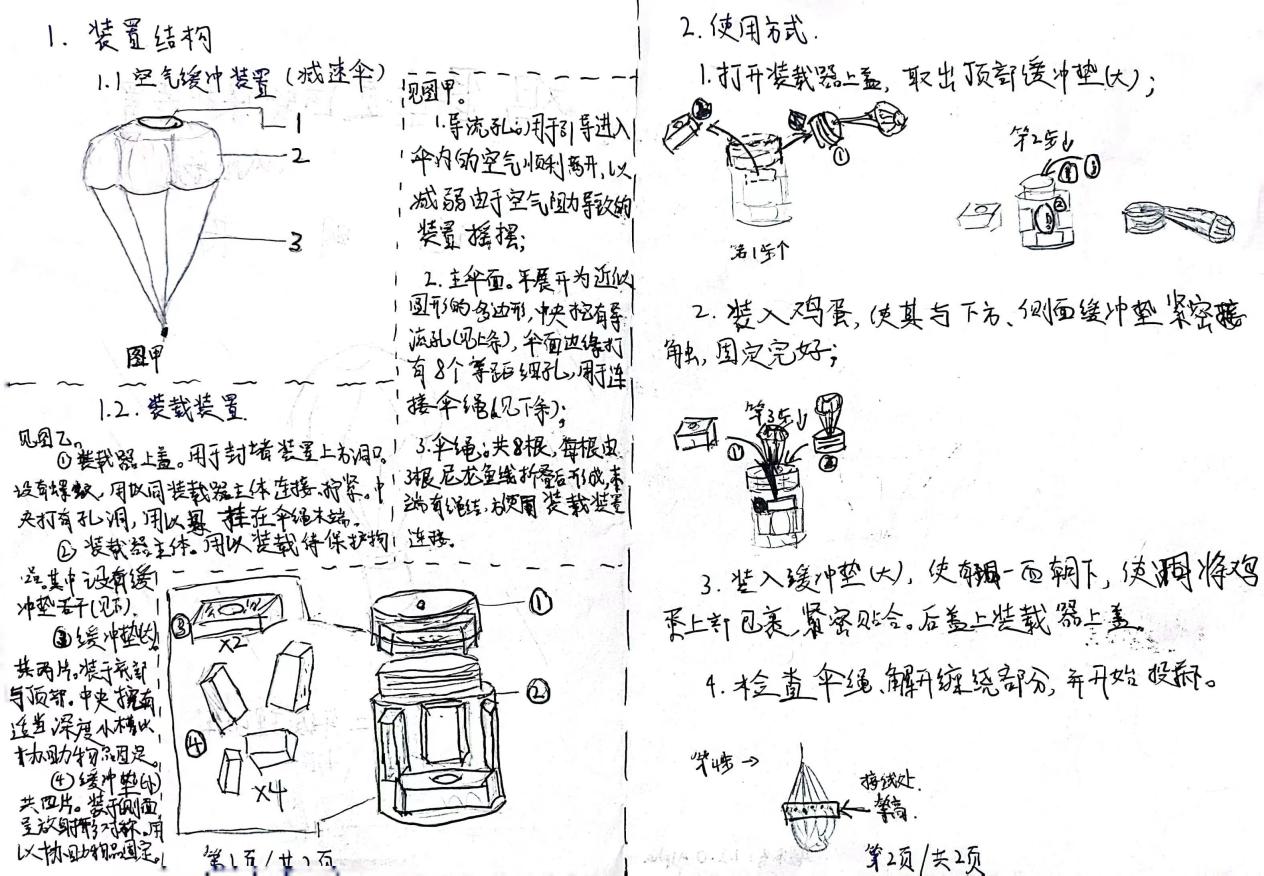 1. 装置结构
1.1 空气缓冲装置(减速伞)
1
2
3
图甲
见图甲。
1.导流孔。用于引导进入
伞内的空气顺利离开,以
减弱由于空气阻力导致的
装置摇摆;
2.主伞面。平展开为近似
圆形的多边形,中央挖有导
流孔(见上条),伞面边缘打
有8个等距细孔,用于连
接伞绳(见下条);
3.伞绳。共8根,每根由
3根尼龙鱼线折叠后形成,末
端有绳结,方便同装载装置
连接。
1.2. 装载装置
见图乙。
①装载器上盖。用于封堵装置上方洞口。
设有螺纹,用以同装载器主体连接、拧紧。中
央打有孔洞,用以挂在伞绳末端。
②装载器主体。用以装载待保护物
品。其中设有缓
冲垫若干(见下)。
③缓冲垫(大)
共两片。装于底部
与顶部。中央挖有
适当深度小槽以
协助物品固定。
④缓冲垫(小)
共四片。装于侧面
呈放射形对称。用
以协助物品固定。
③
×2
④
×4
①
②
第1页/共2页
2.使用方式.
1.打开装载器上盖,取出顶部缓冲垫(大);
①
第1步个
第2步↓
①
②
2.装入鸡蛋,使其与下方、侧面缓冲垫紧密接
触,固定完好;
第3步↓
①
②
3.装入缓冲垫(大),使有一面朝下,使将鸡
蛋上部包裹,紧密贴合。后盖上装载器上盖。
4.检查伞绳、解开缠绕部分,并开始投放。
第4步→
接线处
等高.
第2页/共2页